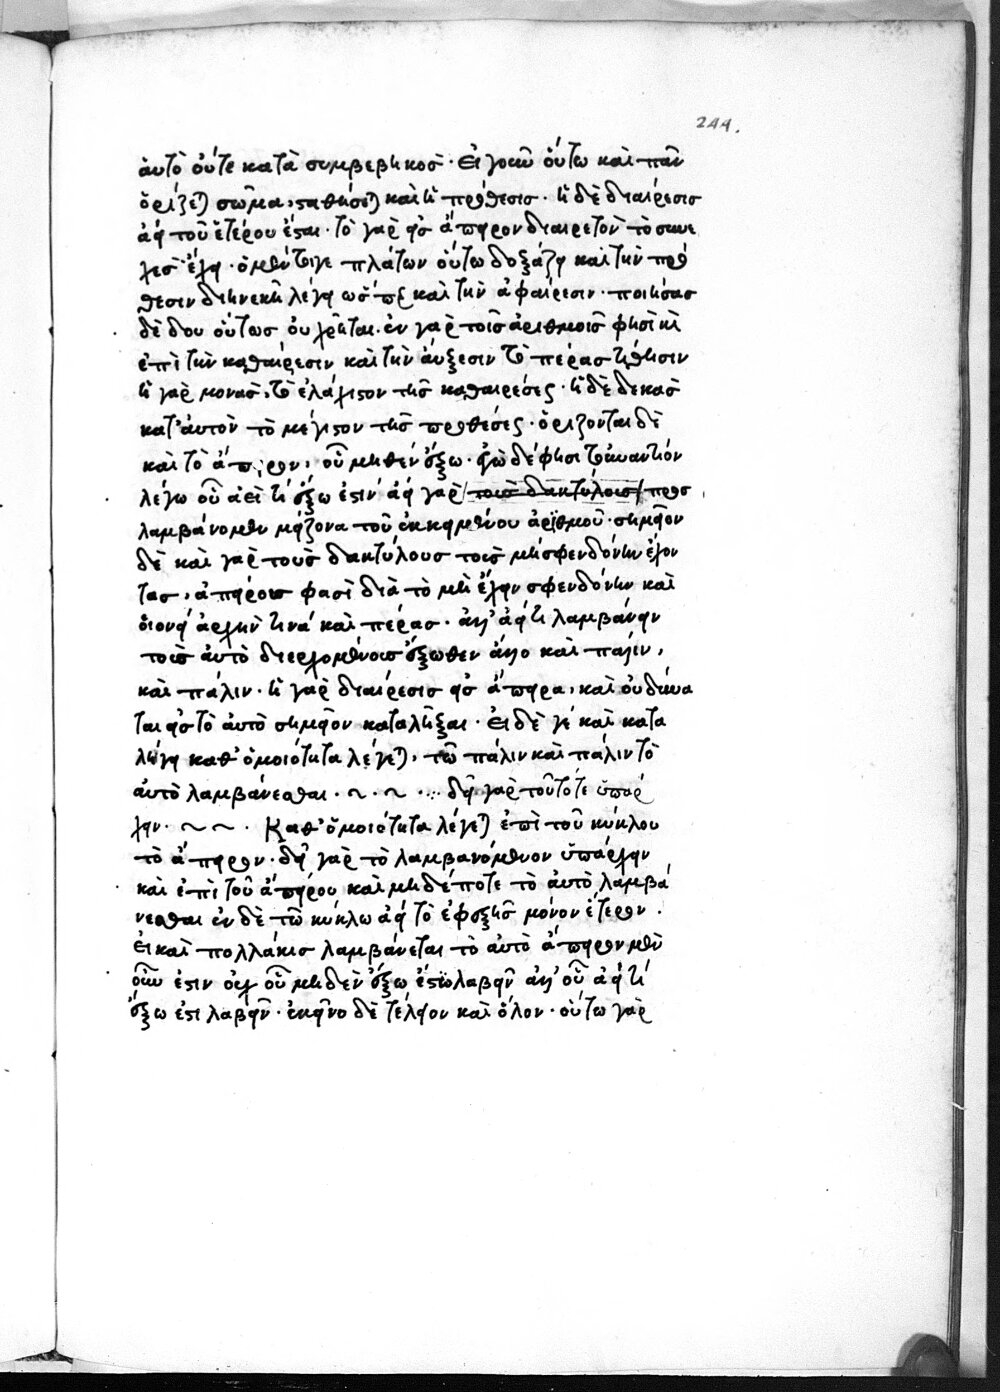 244.
ἀυτὸ ὀύτε κατὰ συμβεβηκοσ· Εἰ γοῦν ὀύτω καὶ πᾶν
ὁρίζεται σῶμα, σταθήσεται καὶ ἡ πρόσθεσισ· ἡ δὲ διαίρεσισ
ἀεὶ τοῦ ἑτέρου ἔσται· τὸ γὰρ εἰσ ἄπειρον διαιρετὸν τὸ συνε
χεσ ἔχει· ὁ μέντοιγε πλάτων ὀύτω δοξάζει καὶ τὴν πρόσ
θεσιν διηνεκῆ λέγει ὥσπερ καὶ τὴν ἀφαίρεσιν· ποιήσασ
δὲ δύο ὀύτωσ ὀυ χρῆται· ἐν γὰρ τοῖσ ἀριθμοῖσ φησὶ καὶ
ἐπὶ τὴν καθαίρεσιν καὶ τὴν ἀύξεσιν τὸ πέρασ τίθησιν
ἡ γὰρ μονασ, τὸ ἐλάχιστον τῆσ καθαιρέσεως· ἡ δὲ δεκασ
κατ' ἀυτὸν τὸ μέγιστον τῆσ προσθέσεως· ὁρίζονται δὲ
καὶ τὸ ἄπειρον, οὗ μηθέν ἔξω· ἐγὼ δέ φησι τὀυναντίον
λέγω οὗ ἀεὶ τί ἔξω ἐστιν· ἀεὶ γὰρ τοισ δακτύλοισ προσ
λαμβάνομεν μείζονα τοῦ ἐκκειμένου ἀριθμοῦ· σημεῖον
δὲ καὶ γὰρ τοὺσ δακτύλουσ τοὺσ μὴ σφενδόνην ἔχον
τασ, ἀπείρουσ φασὶ διὰ τὸ μὴ ἔχειν σφενδόνην καὶ
ὁιονεί ἀρχήν τινά καὶ πέρασ· ἀλλ' ἀεί τι λαμβάνειν
τοῖσ ἀυτὸ διερχομένοισ ἔξωθεν ἄλλο καὶ πάλιν,
καὶ πάλιν· ἡ γὰρ διαίρεσισ εἰσ ἄπειρα, καὶ ὀυ δύνα
ται εἰσ τὸ ἀυτὸ σημεῖον καταλῆξαι· Ἐι δὲ γέ καὶ κατα
λήγει καθ' ὁμοιότητα λέγεται, τῶ πάλιν καὶ πάλιν τὸ
ἀυτὸ λαμβάνεσθαι· ~ · ~ · ∴ δεῖ γὰρ τοῦτό τε ὑπάρ
χειν· ~ ~ · Καθ' ὁμοιότητα λέγεται ἐπὶ τοῦ κύκλου
τὸ ἄπειρον· δεῖ γὰρ τὸ λαμβανόμενον ὑπάρχειν
καὶ ἐπὶ τοῦ ἀπείρου καὶ μηδέποτε τὸ ἀυτὸ λαμβά
νεσθαι ἐν δὲ τῶ κύκλω ἀεὶ τὸ ἐφεξῆσ μόνον ἕτερον·
Ἐι καὶ πολλάκισ λαμβάνεται τὸ ἀυτὸ ἄπειρον μὲν
οὖν ἐστιν ὀυχ οὗ μηδὲν ἔξω ἐστὶ λαβεῖν ἀλλ' οὗ ἀεί τί
ἔξω ἐστι λαβεῖν· ἐκεῖνο δὲ τέλειον καὶ ὅλον· ὀύτω γὰρ